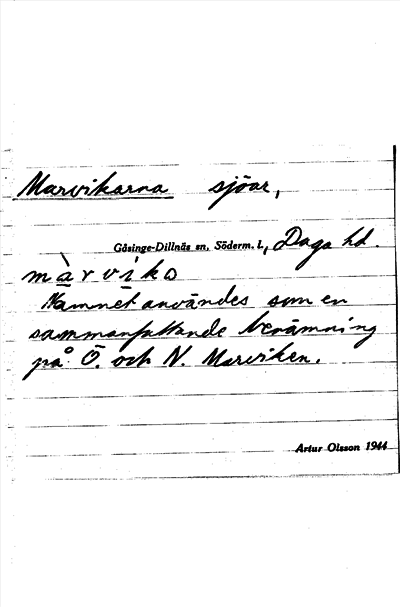 Marvikarna sjöar,
Gåsinge-Dillnäs sn, Söderm. l., Daga hd.
màrvika
Namnet användes som en
sammanfattande benämning
på Ö. och N. Marviken.
Artur Olsson 1944